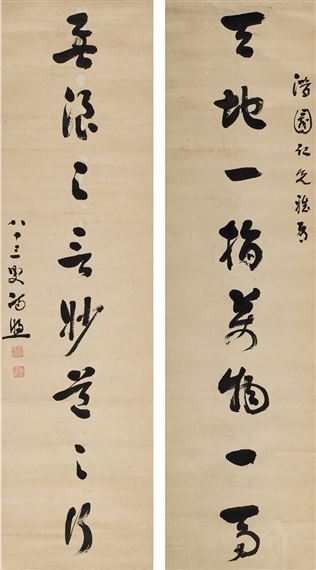 園仁兄雅屬
天地一指萬物一馬
孟浪之言妙道之行
八十三叟馮煦